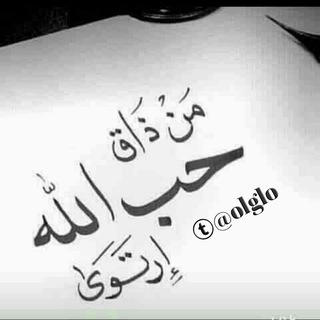 مَنْ ذَاقَ
حب الله
إرتَوَىٰ
t@olglo